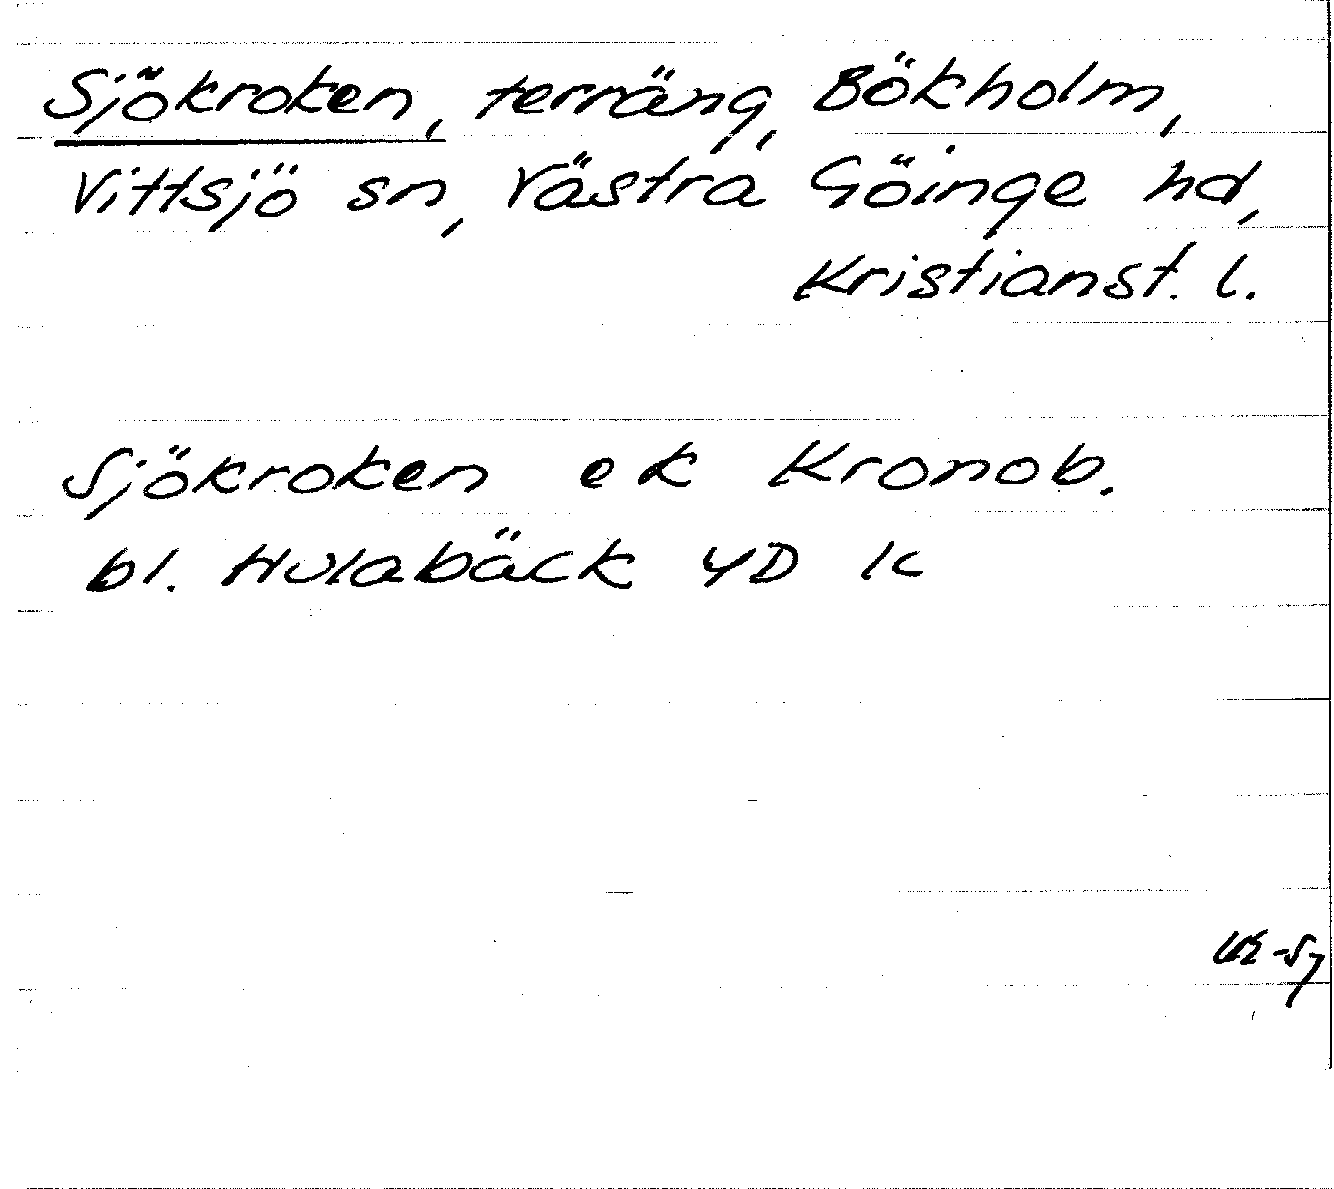 Sjökroken, terräng, Bökholm,
Vittsjö sn, Västra Göinge hd,
Kristianst. l.
Sjökroken ek Kronob.
bl. Hulabäck 4D lc